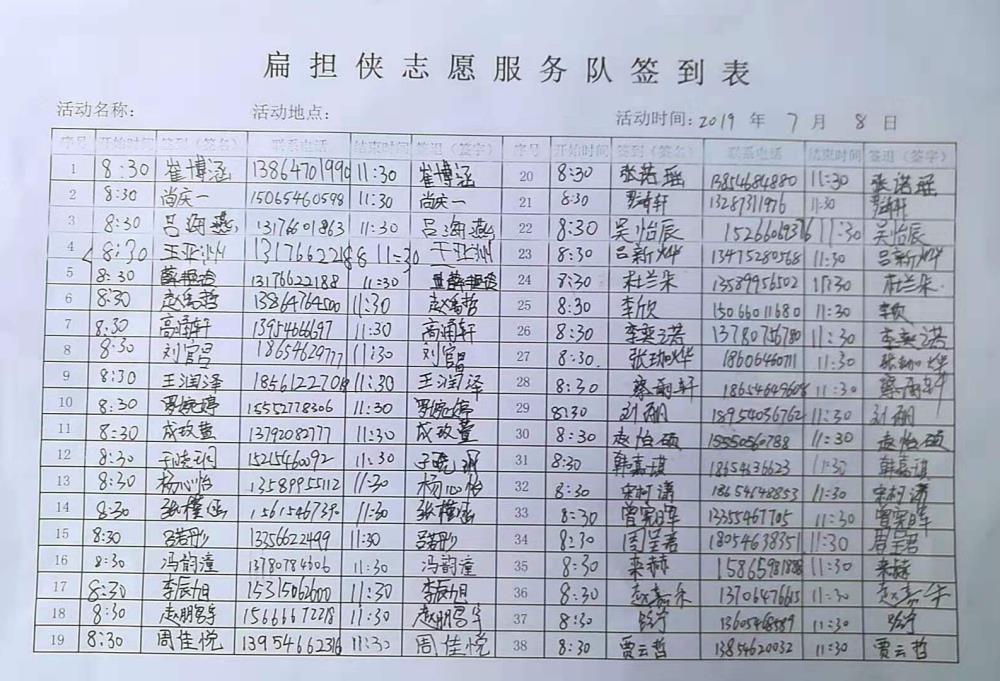 扁担侠志愿服务队签到表
活动名称: 活动地点: 活动时间: 2019 年 7 月 8 日
序号 开始时间 签到（签名） 联系电话 结束时间 签退（签字） 序号 开始时间 签到（签名） 联系电话 结束时间 签退（签字）
1 8:30 崔博涵 13864701990 11:30 崔博涵 20 8:30 张诺瑶 13854684880 11:30 张诺瑶
2 8:30 尚庆一 15065460598 11:30 尚庆一 21 8:30 13287311976 11:30
3 8:30 吕海燕 13176601863 11:30 吕海燕 22 8:30 吴怡辰 11:30 吴怡辰
4 8:30 王亚洲 13176622188 11:30 王亚洲 23 8:30 吕新烨 13475280568 11:30 吕新烨
5 8:30 13176622188 11:30 24 8:30 杜兰朵 13589956502 11:30 杜兰朵
6 8:30 13864764500 11:30 25 8:30 李欣 15066011680 11:30 李欣
7 8:30 高涌轩 11:30 高涌轩 26 8:30 李奕诺 11:30 李奕诺
8 8:30 刘官昌 18654629777 11:30 刘官昌 27 8:30 11:30
9 8:30 王润泽 11:30 王润泽 28 8:30 蔡雨轩 11:30 蔡雨轩
10 8:30 罗婉婷 15552778306 11:30 罗婉婷 29 8:30 18954036762 11:30
11 8:30 成玫萱 13792082777 11:30 成玫萱 30 8:30 赵怡硕 15550560788 11:30 赵怡硕
12 8:30 15215460092 11:30 31 8:30 韩嘉琪 18654636623 11:30 韩嘉琪
13 8:30 杨心怡 13589955112 11:30 杨心怡 32 8:30 宋柯潇 18654648853 11:30 宋柯潇
14 8:30 张槿涵 11:30 张槿涵 33 8:30 曾宪晖 13355467705 11:30 曾宪晖
15 8:30 13356622499 11:30 34 8:30 周呈君 18054638351 11:30 周呈君
16 8:30 冯韵潼 13780784606 11:30 冯韵潼 35 8:30 11:30
17 8:30 李辰旭 15315062600 11:30 李辰旭 36 8:30 13706476615 11:30
18 8:30 15666672278 11:30 37 8:30 11:30
19 8:30 周佳悦 13954662316 11:30 周佳悦 38 8:30 贾云哲 13854620032 11:30 贾云哲